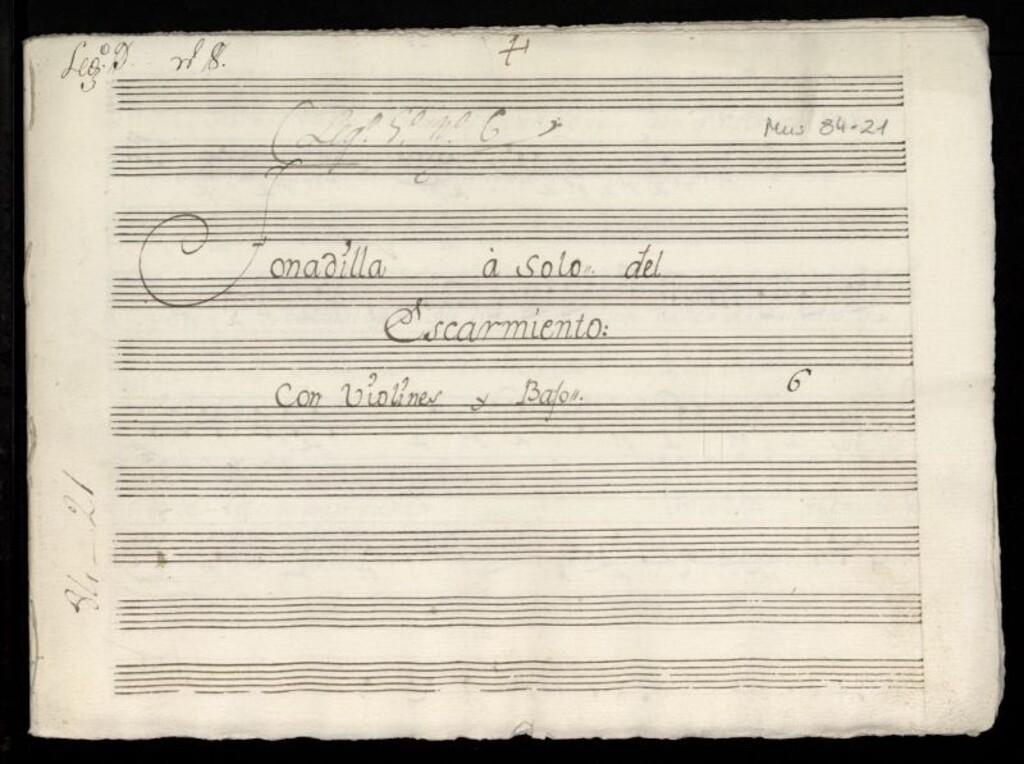 Leg.º 9. nº 8.
Leg.º 5.º n.º 6
Mus 84-21
Tonadilla à Solo.. del
Escarmiento:
Con Violines y Bajo..
6
84-21